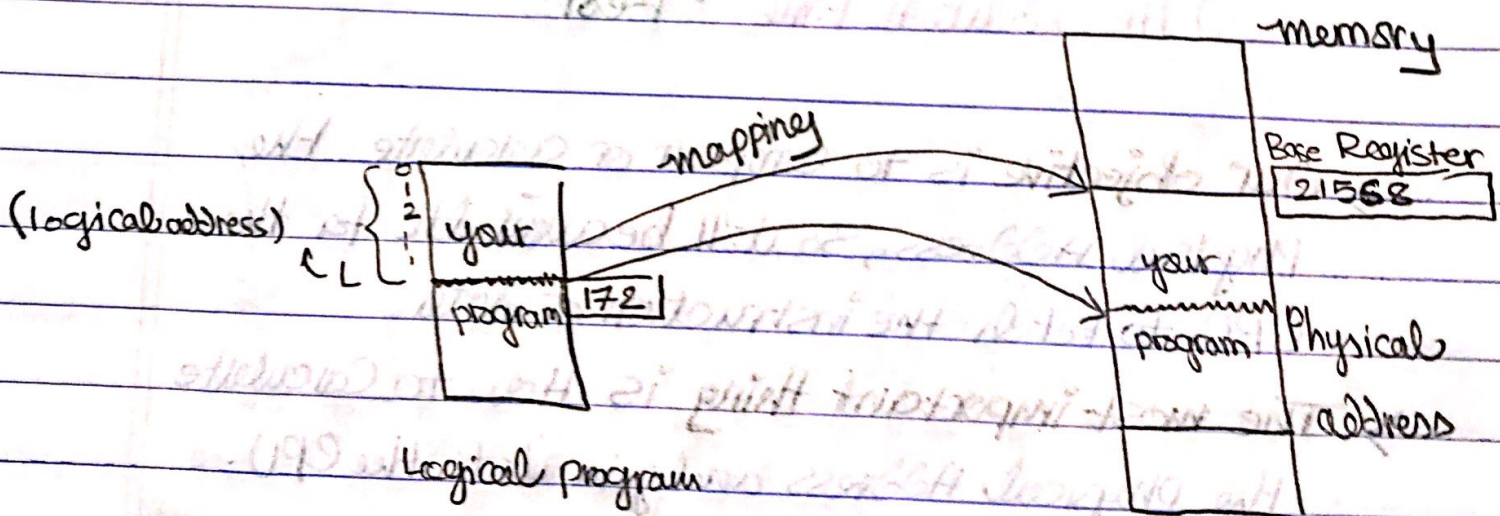 memory
mapping
Base Register
21568
0
1
2
(Logical address)
your
172
program
your
program
Physical
address
Logical program